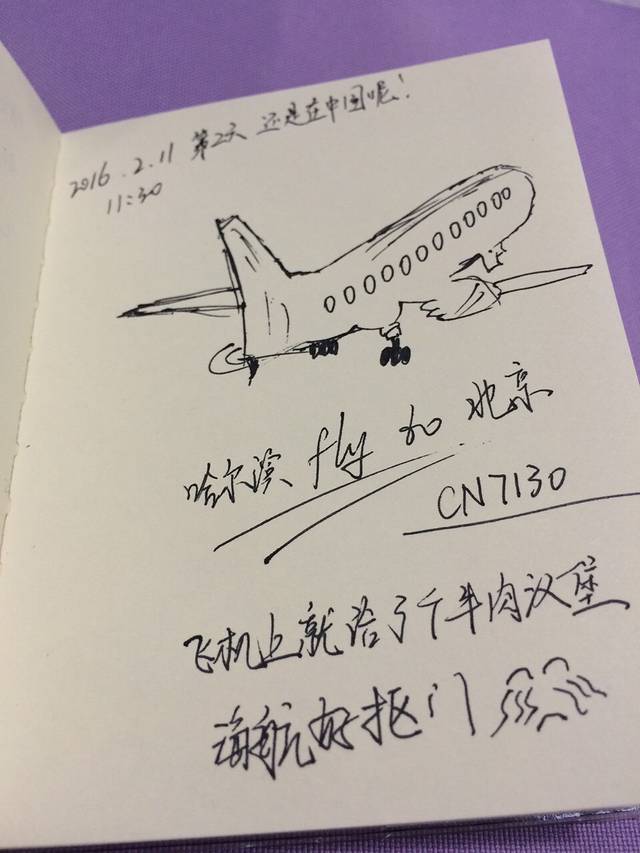 2016.2.11 第2天 还是在中国呢!
11:30
哈尔滨 fly to 北京
CN7130
飞机上就给了个牛肉汉堡
海航好抠门